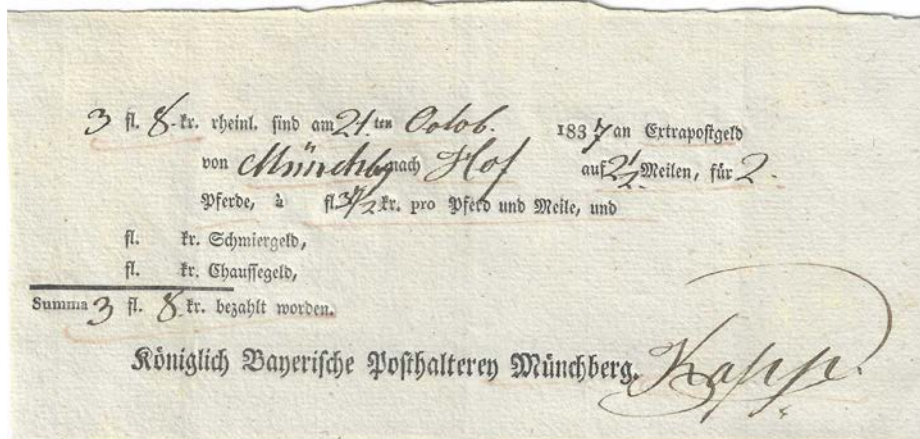 3 fl. 8 kr. rheinl. sind am 21. ten Octob. 1837 an Extrapostgeld
von Münchbg nach Hof auf 2 1/2 Meilen, für 2.
Pferde, à fl. 37 1/2 kr. pro Pferd und Meile, und
fl. kr. Schmiergeld,
fl. kr. Chaussegeld,
Summa 3 fl. 8 kr. bezahlt worden.
Königlich Bayerische Posthalterey Münchberg.
Kapp.